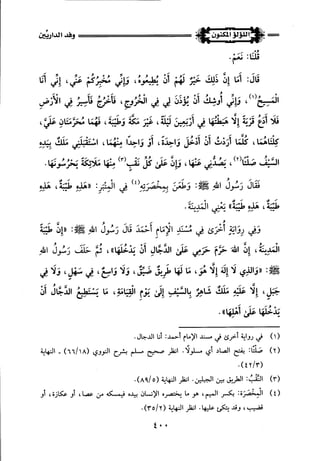 اللؤلؤ المكنون
وفد الداريين
قُلْنَا: نَعَمْ.
قَالَ: أَمَا إِنَّ ذَلِكَ خَيْرٌ لَهُمْ أَنْ يُطِيعُوهُ، وَإِنِّي مُخْبِرُكُمْ عَنِّي، إِنِّي أَنَا
الْمَسِيحُ(١)، وَإِنِّي أُوشِكُ أَنْ يُؤْذَنَ لِي فِي الْخُرُوجِ، فَأَخْرُجَ فَأَسِيرَ فِي الْأَرْضِ
فَلَا أَدَعَ قَرْيَةً إِلَّا هَبَطْتُهَا فِي أَرْبَعِينَ لَيْلَةً، غَيْرَ مَكَّةَ وَطَيْبَةَ، فَهُمَا مُحَرَّمَتَانِ عَلَيَّ،
كِلْتَاهُمَا، كُلَّمَا أَرَدْتُ أَنْ أَدْخُلَ وَاحِدَةً، أَوْ وَاحِدًا مِنْهُمَا، اسْتَقْبَلَنِي مَلَكٌ بِيَدِهِ
السَّيْفُ صَلْتًا(٢)، يَصُدُّنِي عَنْهَا، وَإِنَّ عَلَى كُلِّ نَقْبٍ(٣) مِنْهَا مَلَائِكَةً يَحْرُسُونَهَا.
فَقَالَ رَسُولُ اللهِ ﷺ: وَطَعَنَ بِمِخْصَرَتِهِ(٤) فِي الْمِنْبَرِ: «هَذِهِ طَيْبَةُ، هَذِهِ
طَيْبَةُ، هَذِهِ طَيْبَةُ» يَعْنِي الْمَدِينَةَ.
وَفِي رِوَايَةٍ أُخْرَى فِي مُسْنَدِ الْإِمَامِ أَحْمَدَ قَالَ رَسُولُ اللهِ ﷺ: «إِنَّ طَيْبَةَ
الْمَدِينَةُ، إِنَّ اللهَ حَرَّمَ حَرَمِي عَلَى الدَّجَّالِ أَنْ يَدْخُلَهَا»، ثُمَّ حَلَفَ رَسُولُ اللهِ
ﷺ: «وَالَّذِي لَا إِلَهَ إِلَّا هُوَ، مَا لَهَا طَرِيقٌ ضَيِّقٌ، وَلَا وَاسِعٌ، فِي سَهْلٍ، وَلَا فِي
جَبَلٍ، إِلَّا عَلَيْهِ مَلَكٌ شَاهِرٌ بِالسَّيْفِ إِلَى يَوْمِ الْقِيَامَةِ، مَا يَسْتَطِيعُ الدَّجَّالُ أَنْ
يَدْخُلَهَا عَلَى أَهْلِهَا».
(١) في رواية أخرى في مسند الإمام أحمد: أنا الدجال.
(٢) صَلْتًا: بفتح الصاد أي مسلولًا. انظر صحيح مسلم بشرح النووي (٦٦/١٨) - النهاية
(٤٢/٣).
(٣) النَّقْبُ: الطريق بين الجبلين. انظر النهاية (٨٩/٥).
(٤) المِخْصَرَةُ: بكسر الميم، هو ما يختصره الإنسان بيده فيمسكه من عصا، أو عكازة، أو
قضيب، وقد يتكئ عليها. انظر النهاية (٣٥/٢).
٤٠٠